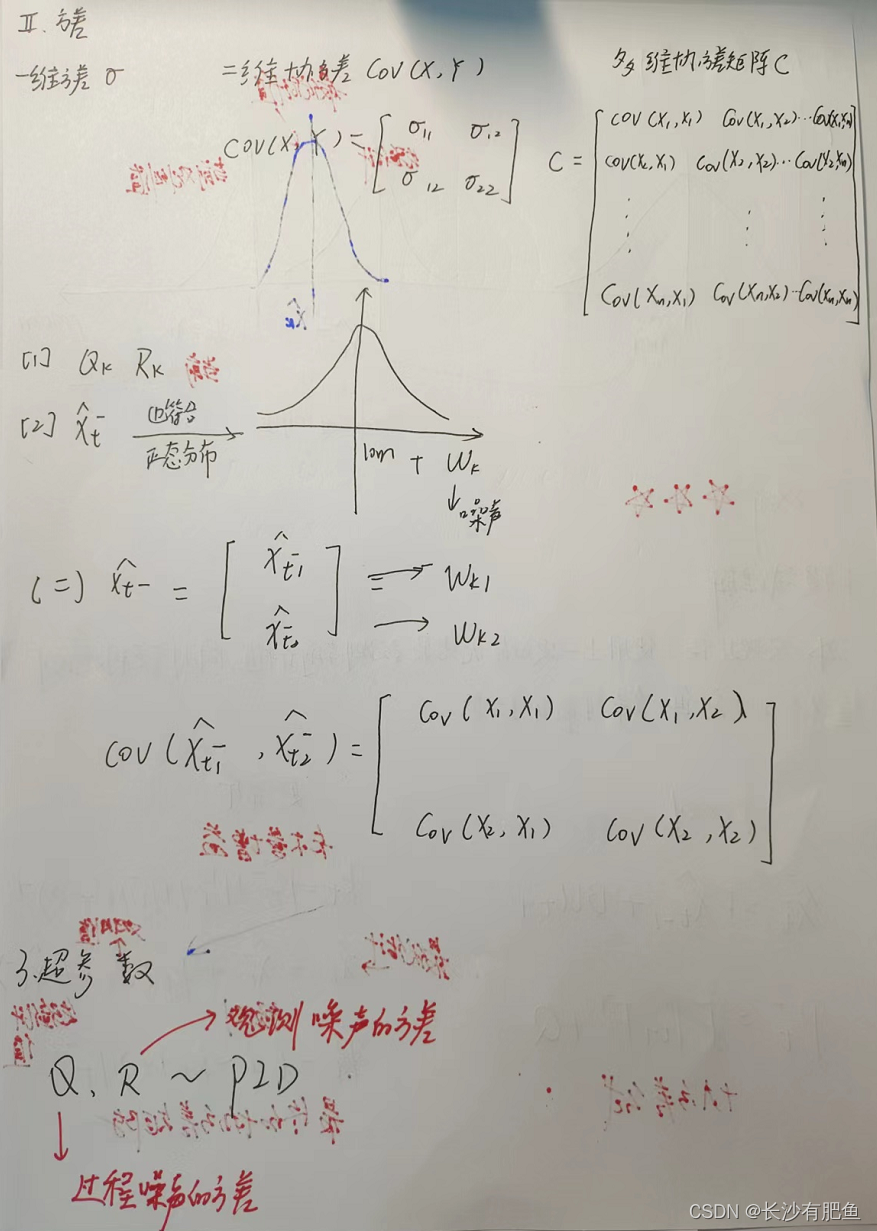 II. 方差
一维方差 σ
二维协方差 COV(X,Y)
多维协方差矩阵 C
COV(X,Y) = [ σ11 σ12
σ12 σ22 ]
C = [ COV(X1,X1) COV(X1,X2) … COV(X1,Xn)
COV(X2,X1) COV(X2,X2) … COV(X2,Xn)
⋮ ⋮ ⋮
COV(Xn,X1) COV(Xn,X2) … COV(Xn,Xn) ]
[1] QK RK
[2] x̂t⁻ 也符合
正态分布
10m + WK
↓噪声
(二) x̂t⁻ = [ x̂t1⁻ → WK1
x̂t2⁻ ] → WK2
COV(x̂t1⁻, x̂t2⁻) = [ COV(X1,X1) COV(X1,X2)
COV(X2,X1) COV(X2,X2) ]
3.超参数
观测噪声的方差
Q、R ~ PID
过程噪声的方差
CSDN @长沙有肥鱼